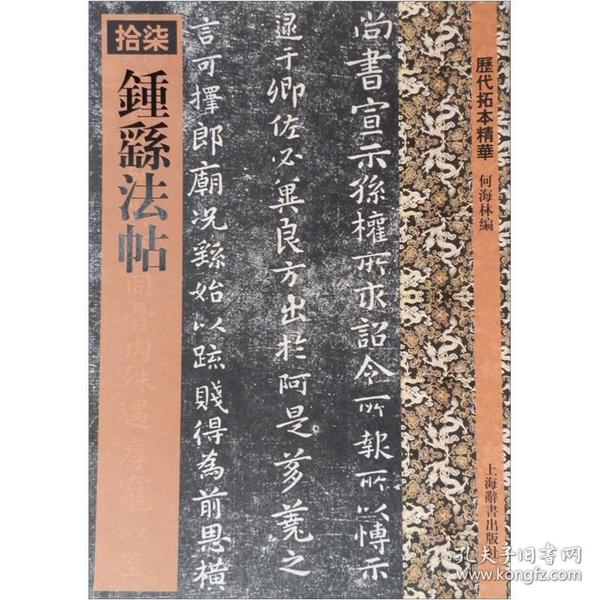 拾柒
鍾繇法帖
同骨肉殊遇厚寵
尚書宣示孫權所求詔令所報所以博示
逮于卿佐必冀良方出於阿是芻蕘之
言可擇郎廟況繇始以疏賤得為前恩橫
歷代拓本精華
何海林編
上海辭書出版社
孔夫子旧书网
www.kongfz.com